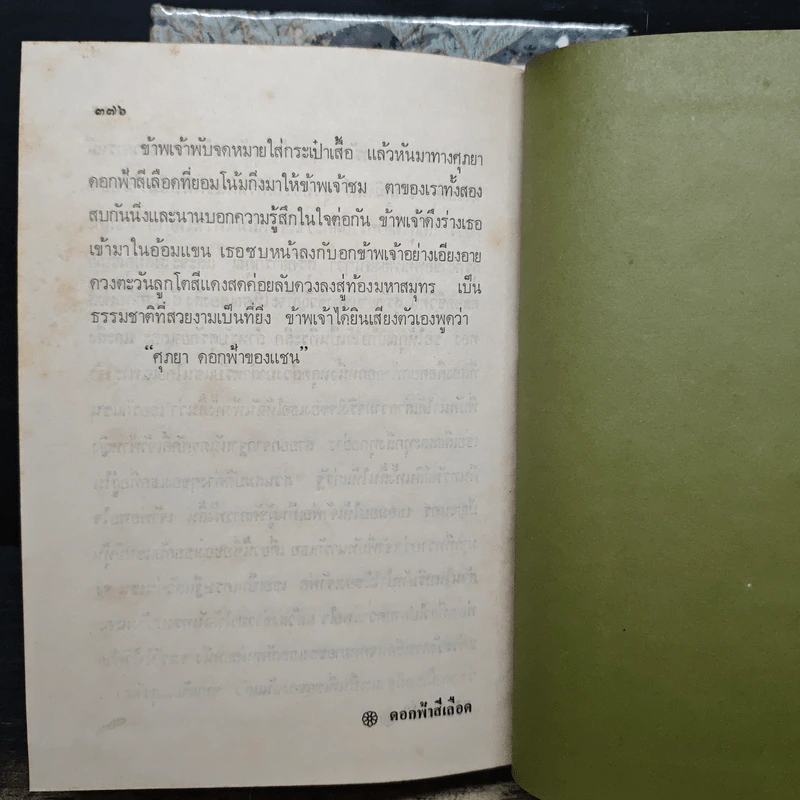 ๓๗๖
ข้าพเจ้าพับจดหมายใส่กระเป๋าเสื้อ แล้วหันมาทางศุภยา
ดอกฟ้าสีเลือดที่ยอมโน้มกิ่งมาให้ข้าพเจ้าชม ตาของเราทั้งสอง
สบกันนิ่งและนานบอกความรู้สึกในใจต่อกัน ข้าพเจ้าดึงร่างเธอ
เข้ามาในอ้อมแขน เธอซบหน้าลงกับอกข้าพเจ้าอย่างเอียงอาย
ดวงตะวันลูกโตสีแดงสดค่อยลับดวงลงสู่ท้องมหาสมุทร เป็น
ธรรมชาติที่สวยงามเป็นที่ยิ่ง ข้าพเจ้าได้ยินเสียงตัวเองพูดว่า
“ศุภยา ดอกฟ้าของแชน”
ดอกฟ้าสีเลือด